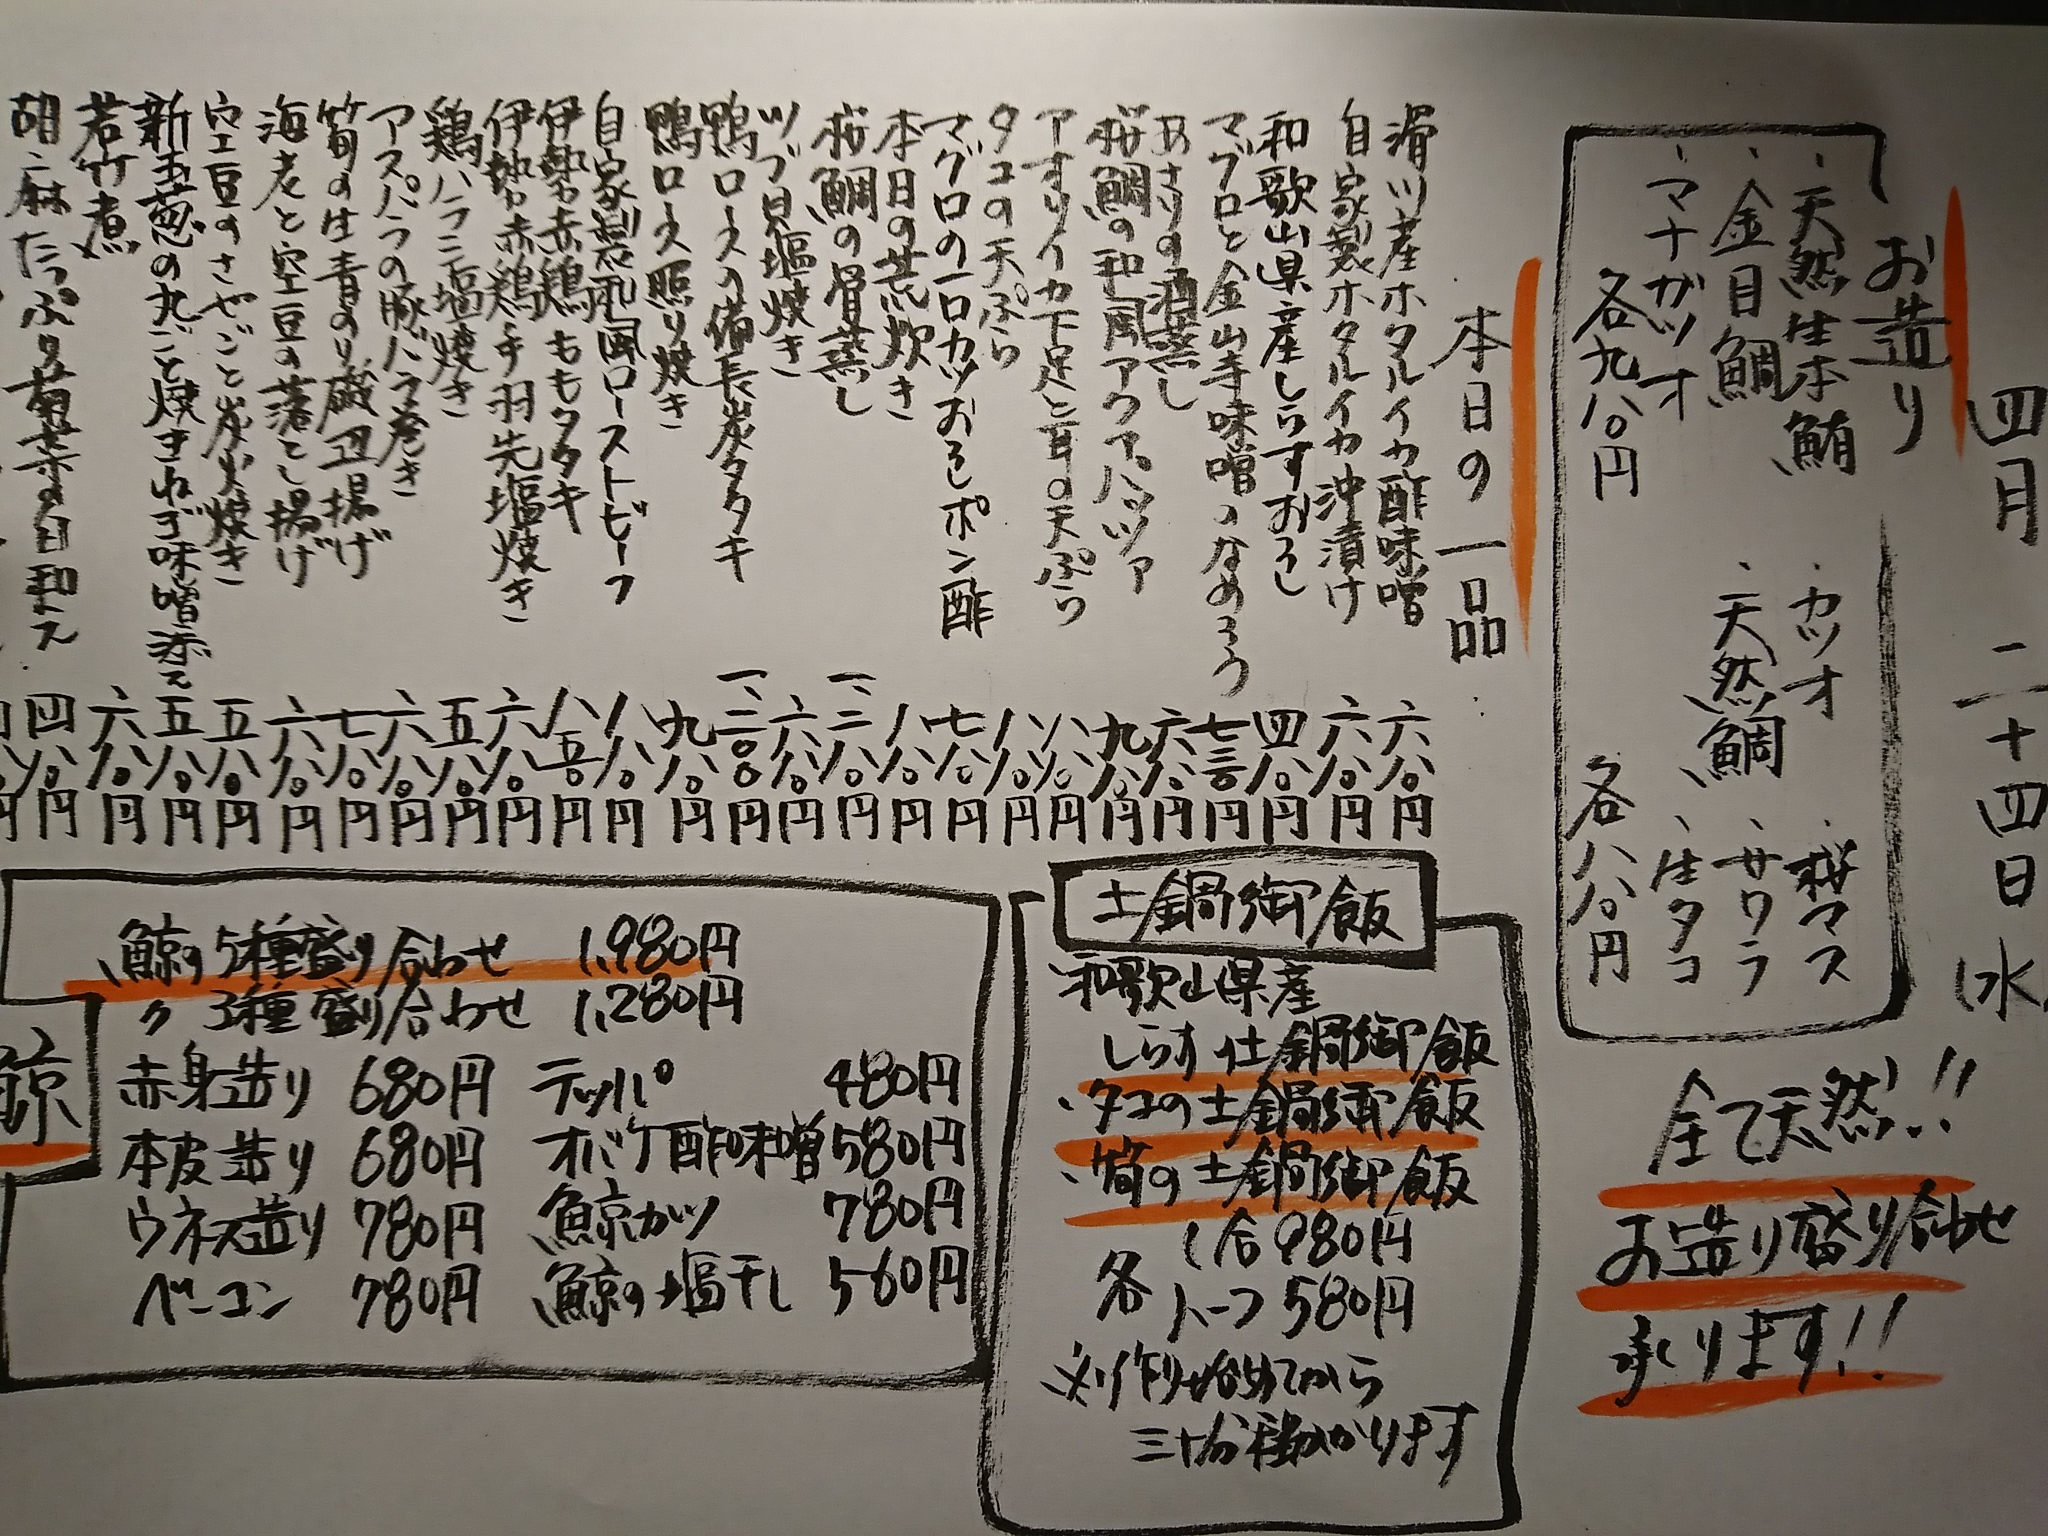 四月二十四日(水)
お造り
、天然生本鮪
、金目鯛
、マナガツオ
各九八〇円
、カツオ
、天然鯛
、桜マス
、サワラ
、生タコ
各八八〇円
全て天然!!
お造り盛り合わせ
承ります!!
本日の一品
滑川産ホタルイカ酢味噌 六八〇円
自家製ホタルイカ沖漬け 六八〇円
和歌山県産しらすおろし 四八〇円
マグロと金山寺味噌のなめろう 七三〇円
あさりの酒蒸し 六八〇円
桜鯛の和風アクアパッツァ 九八〇円
アオリイカ下足と耳の天ぷら 八八〇円
タコの天ぷら 八八〇円
マグロの一口カツおろしポン酢 七八〇円
本日の荒炊き 八八〇円
桜鯛の骨蒸し 一、二八〇円
ツブ貝塩焼き 六八〇円
鴨ロースの備長炭タタキ 一、二〇〇円
鴨ロース照り焼き 九八〇円
自家製和風ローストビーフ 八八〇円
伊勢赤鶏ももタタキ 八五〇円
伊勢赤鶏手羽先塩焼き 六八〇円
鶏ハラミ塩焼き 五八〇円
アスパラの豚バラ巻き 六八〇円
筍の生青のり磯辺揚げ 七八〇円
海老と空豆の落とし揚げ 六八〇円
空豆のさやごと炭火焼き 五八〇円
新玉葱の丸ごと焼きねぎ味噌添え 五八〇円
若竹煮 六八〇円
胡麻たっぷり菊菜の白和え 四八〇円
土鍋御飯
和歌山県産
しらす土鍋御飯
、タコの土鍋御飯
、筍の土鍋御飯
各 1合980円
ハーフ580円
※作り始めてから
三十分程かかります
鯨
鯨の5種盛り合わせ 1,980円
〃 3種盛り合わせ 1,280円
赤身造り 680円
本皮造り 680円
ウネス造り 780円
ベーコン 780円
テッパ 480円
オバケ酢味噌 580円
鯨カツ 780円
鯨の塩干し 560円